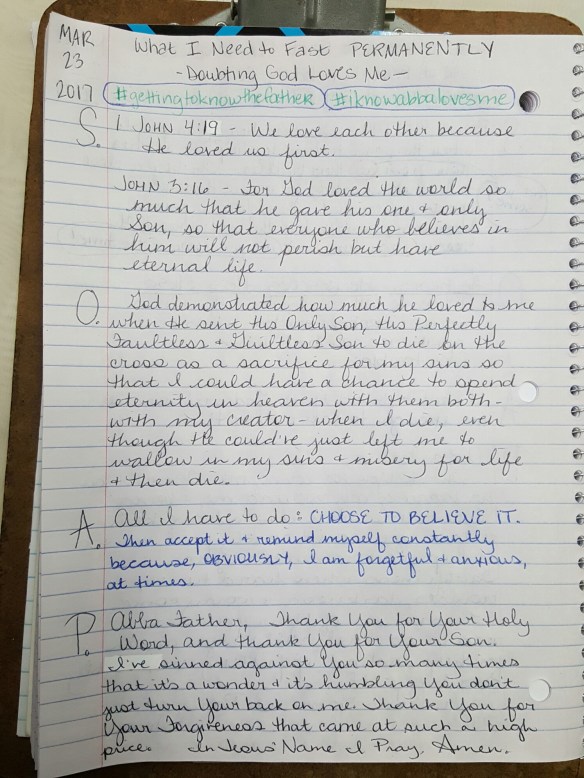 MAR
23
2017
What I Need to Fast PERMANENTLY
- Doubting God Loves Me -
#gettingtoknowthefather #iknowabbalovesme
S. 1 JOHN 4:19 - We love each other because
He loved us first.
JOHN 3:16 - For God loved the world so
much that he gave his one + only
Son, so that everyone who believes in
him will not perish but have
eternal life.
O. God demonstrated how much he loved to me
when He sent His Only Son, His Perfectly
Faultless + Guiltless Son to die on the
cross as a sacrifice for my sins so
that I could have a chance to spend
eternity in heaven with them both -
with my creator - when I die, even
though He could've just left me to
wallow in my sins + misery for life
+ then die.
A. All I have to do: CHOOSE TO BELIEVE IT.
Then accept it + remind myself constantly
because, OBVIOUSLY, I am forgetful + anxious,
at times.
P. Abba Father, Thank You for Your Holy
Word, and thank You for Your Son.
I've sinned against You so many times
that it's a wonder + it's humbling You don't
just turn Your back on me. Thank You for
Your Forgiveness that came at such a high
price. In Jesus' Name I Pray, Amen.